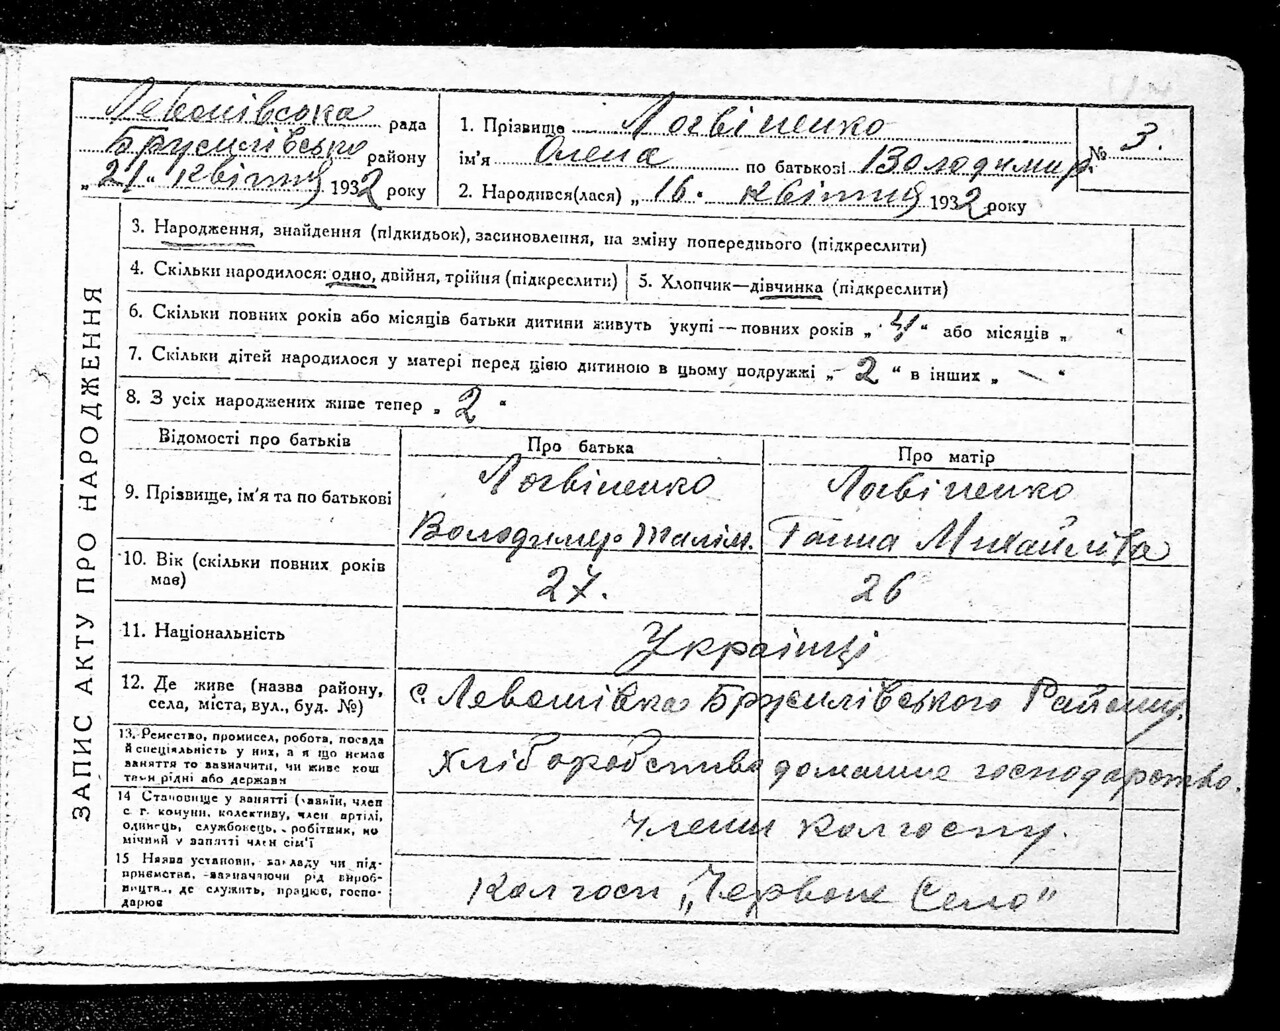 Левонівська рада
Брусилівсько району
„21“ квітня 1932 року
1. Прізвище Логвіненко
ім'я Олена по батькові Володимир.
2. Народився(лася) „16. квітня 1932 року
№ 3.
ЗАПИС АКТУ ПРО НАРОДЖЕННЯ
3. Народження, знайдення (підкидьок), засиновлення, на зміну попереднього (підкреслити)
4. Скільки народилося: одно, двійня, трійня (підкреслити)
5. Хлопчик—дівчинка (підкреслити)
6. Скільки повних років або місяців батьки дитини живуть укупі—повних років „4“ або місяців „ “
7. Скільки дітей народилося у матері перед цією дитиною в цьому подружжі „2“ в інших „—“
8. З усіх народжених живе тепер „2“
Відомості про батьків
Про батька
Про матір
9. Прізвище, ім'я та по батькові
Логвіненко
Володимир
Логвіненко
Ганна Михайлівна
10. Вік (скільки повних років
має)
27.
26
11. Національність
Українці
12. Де живе (назва району,
села, міста, вул., буд. №)
с. Левонівка Брусилівського Району.
13. Ремество, промисел, робота, посада
й спеціяльність у них, а я що немає
заняття то вазначити, чи живе кош
том рідні або держави
Хліборобство домашнє господарство.
14 Становище у занятті (хазяїн, член
с. г. комуни, колективу, член артілі,
одинець, службовець, робітник, по
мічний у занятті член сім'ї
Члени колгоспу.
15 Назва установи, закладу чи під-
приємства, зазначаючи рід вироб-
ництва, де служить, працює, госпо-
дарює
Колгосп „Червоне Село“